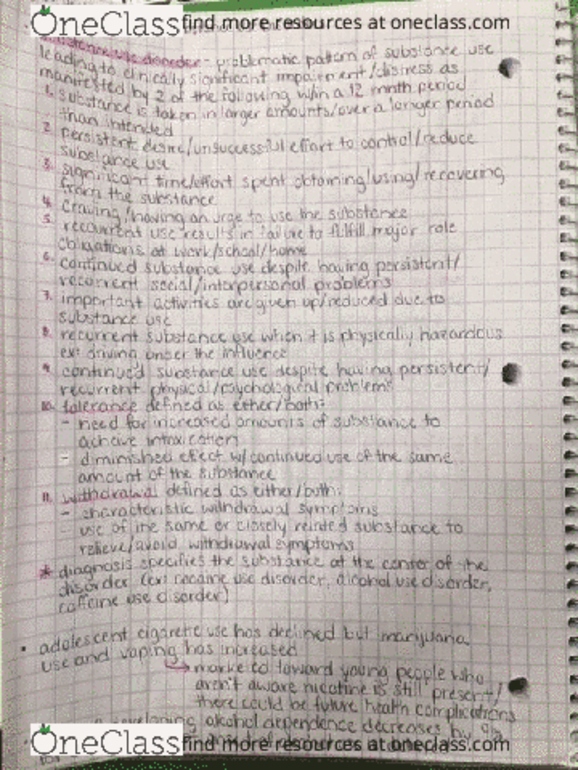 OneClass find more resources at oneclass.com
substance use disorder - problematic pattern of substance use
leading to clinically significant impairment/distress as
manifested by 2 of the following w/in a 12 month period
1. substance is taken in larger amounts/over a longer period
than intended
2. persistent desire/unsuccessful effort to control/reduce
substance use
3. significant time/effort spent obtaining/using/recovering
from the substance
4. craving/having an urge to use the substance
5. recurrent use results in failure to fulfill major role
obligations at work/school/home
6. continued substance use despite having persistent/
recurrent social/interpersonal problems
7. important activities are given up/reduced due to
substance use
8. recurrent substance use when it is physically hazardous
ex: driving under the influence
9. continued substance use despite having persistent/
recurrent physical/psychological problems
10. tolerance defined as either/both:
- need for increased amounts of substance to
achieve intoxication
- diminished effect w/continued use of the same
amount of the substance
11. withdrawal defined as either/both:
- characteristic withdrawal symptoms
- use of the same or closely related substance to
relieve/avoid withdrawal symptoms
* diagnosis specifies the substance at the center of the
disorder (ex: cocaine use disorder, alcohol use disorder,
caffeine use disorder)
• adolescent cigarette use has declined but marijuana
use and vaping has increased
↳ marketed toward young people who
aren't aware nicotine is still present/
there could be future health complications
developing alcohol dependence decreases by
OneClass find more resources at oneclass.com